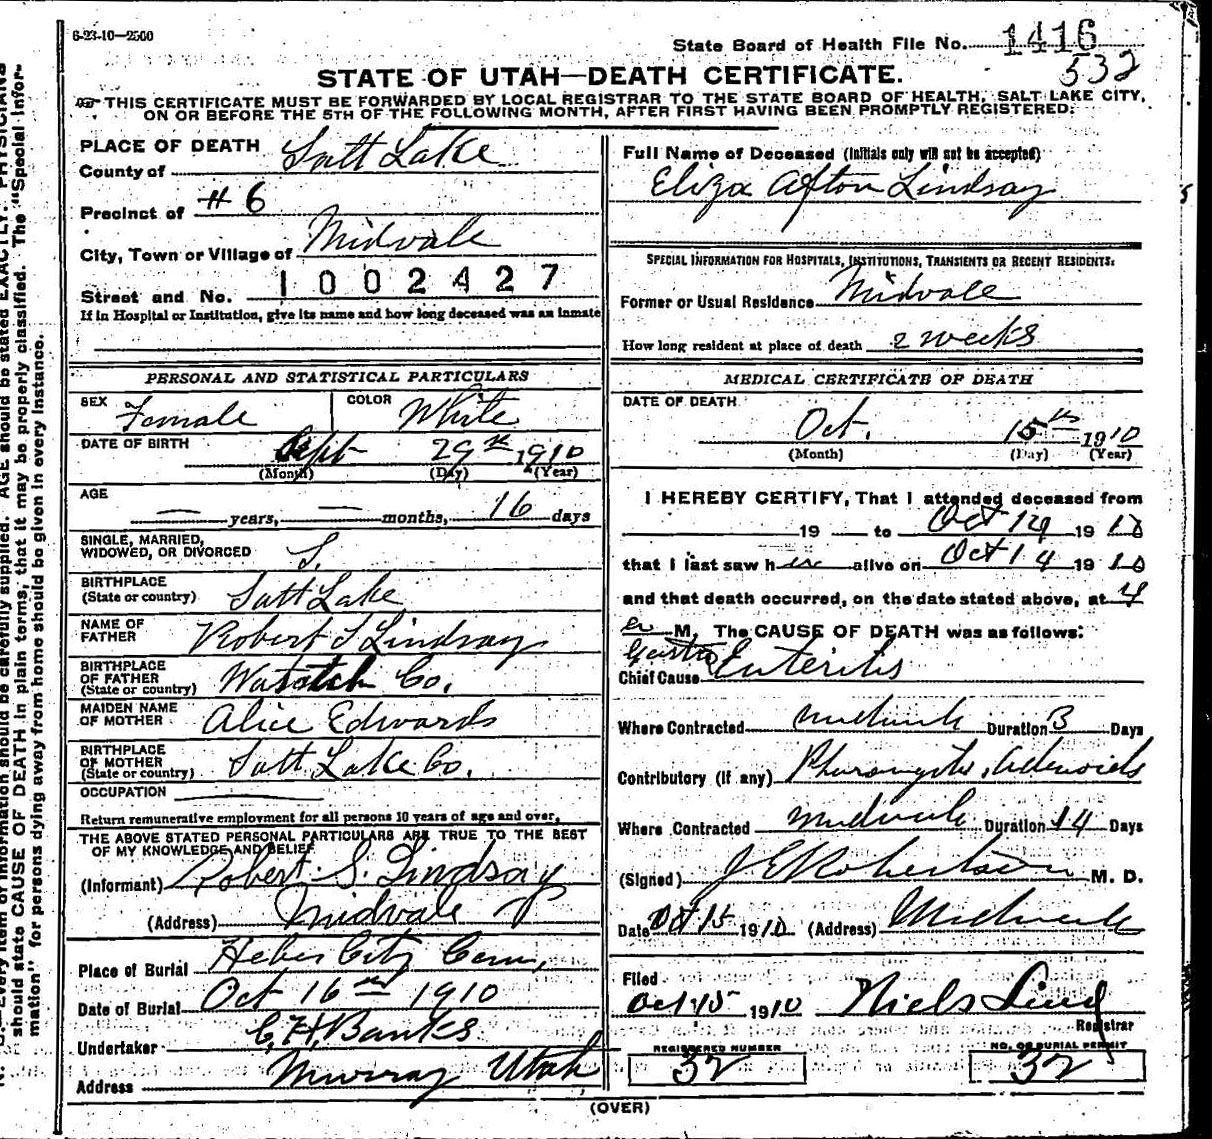 6-23-10—2500
State Board of Health File No. 1416
532
STATE OF UTAH—DEATH CERTIFICATE.
THIS CERTIFICATE MUST BE FORWARDED BY LOCAL REGISTRAR TO THE STATE BOARD OF HEALTH, SALT LAKE CITY,
ON OR BEFORE THE 5TH OF THE FOLLOWING MONTH, AFTER FIRST HAVING BEEN PROMPTLY REGISTERED:
PLACE OF DEATH
County of Salt Lake
Precinct of #6
City, Town or Village of Midvale
1002427
Street and No.
If in Hospital or Institution, give its name and how long deceased was an inmate
PERSONAL AND STATISTICAL PARTICULARS
SEX Female
COLOR White
DATE OF BIRTH Sept 29th 1910
(Month) (Day) (Year)
AGE
— years, — months, 16 days
SINGLE, MARRIED,
WIDOWED, OR DIVORCED S.
BIRTHPLACE
(State or country) Salt Lake
NAME OF
FATHER Robert S Lindsay
BIRTHPLACE
OF FATHER
(State or country) Wasatch Co.
MAIDEN NAME
OF MOTHER Alice Edwards
BIRTHPLACE
OF MOTHER
(State or country) Salt Lake Co.
OCCUPATION
Return remunerative employment for all persons 10 years of age and over,
THE ABOVE STATED PERSONAL PARTICULARS ARE TRUE TO THE BEST
OF MY KNOWLEDGE AND BELIEF
(Informant) Robert S. Lindsay
(Address) Midvale
Place of Burial Heber City Cem,
Date of Burial Oct 16th 1910
Undertaker C. H. Banks
Address Murray Utah
Full Name of Deceased (Initials only will not be accepted)
Eliza Afton Lindsay
SPECIAL INFORMATION FOR HOSPITALS, INSTITUTIONS, TRANSIENTS OR RECENT RESIDENTS.
Former or Usual Residence Midvale
How long resident at place of death 2 weeks
MEDICAL CERTIFICATE OF DEATH
DATE OF DEATH
Oct. 15th 1910
(Month) (Day) (Year)
I HEREBY CERTIFY, That I attended deceased from
19 to Oct 14 1910
that I last saw her alive on Oct 14 1910
and that death occurred, on the date stated above, at 4
M. The CAUSE OF DEATH was as follows:
Chief Cause Gastro Enteritis
Where Contracted Midvale Duration 3 Days
Contributory (if any) Pharyngitis, Adenoids
Where Contracted Midvale Duration 14 Days
(Signed) J E Robertson M. D.
Date Oct 15 1910 (Address) Midvale
Filed
Oct 15 1910 Niels Lind
Registrar
REGISTERED NUMBER
32
NO. OF BURIAL PERMIT
32
(OVER)
N. B.—Every item of information should be carefully supplied. AGE should be stated EXACTLY. PHYSICIANS
should state CAUSE OF DEATH in plain terms, that it may be properly classified. The "Special Infor-
mation" for persons dying away from home should be given in every instance.